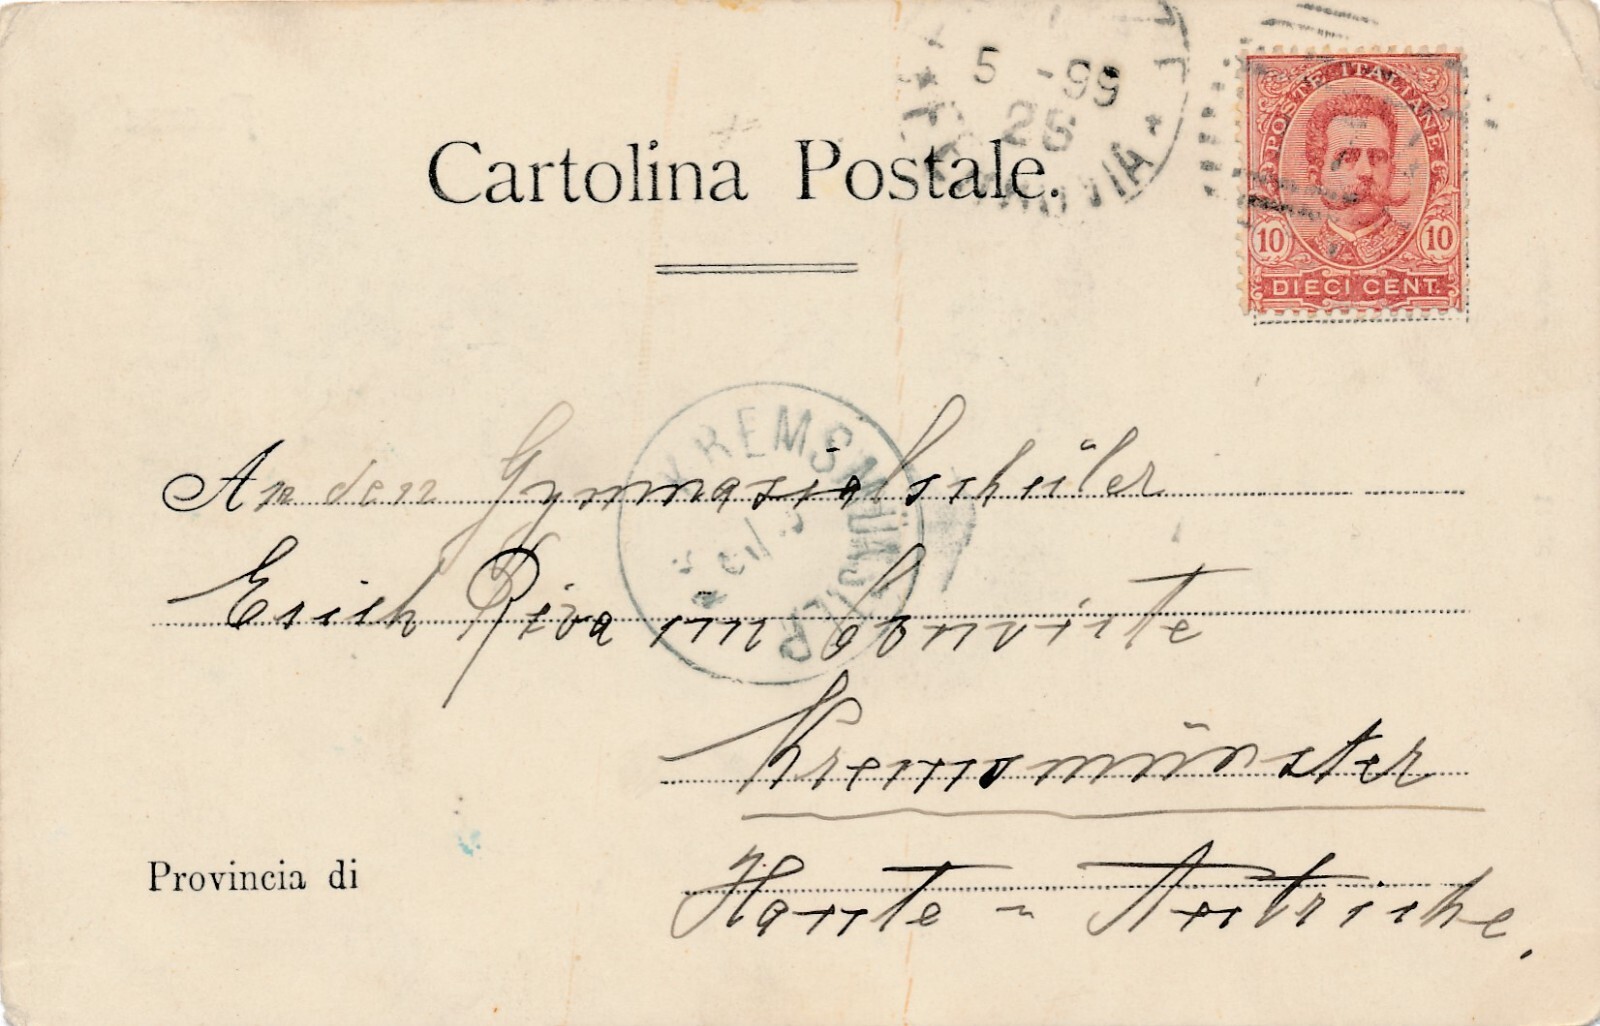 Cartolina Postale.
5 - 99
26
POSTE ITALIANE
10 10
DIECI CENT.
KREMSMÜNSTER
An den Gymnasialschüler
Erich Riva im Convicte
Kremsmünster
Provincia di
Haute - Autriche.